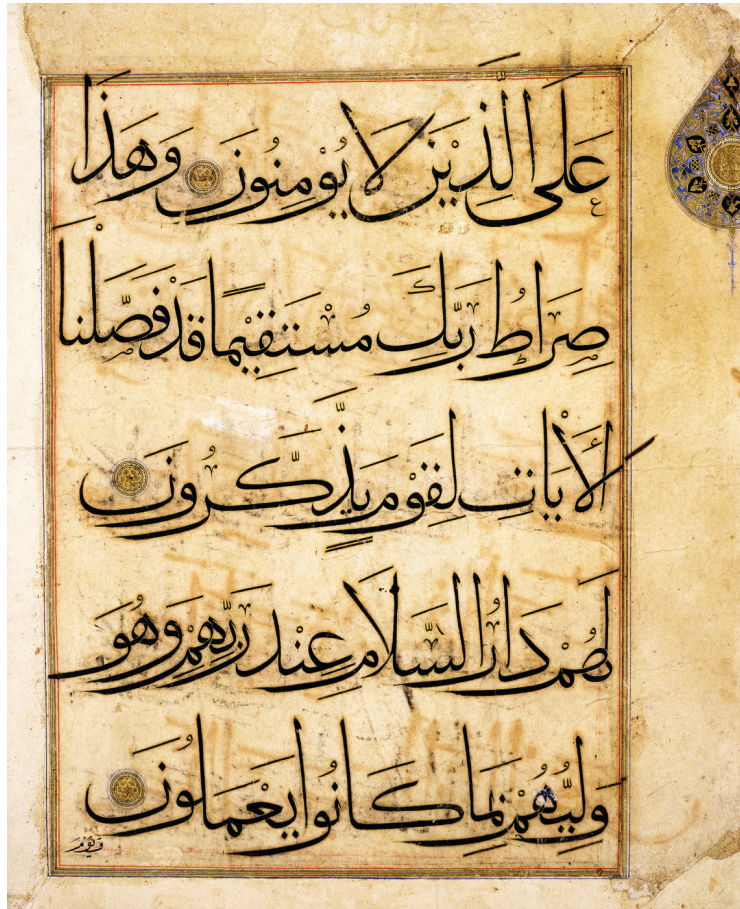 عَلَى الَّذِيْنَ لَا يُؤمِنُونَ وَهَذَا
صِرَاطُ رَبِّكَ مُسْتَقِيْمًا قَدْ فَصَّلْنَا
الْأَيَاتِ لِقَوْمٍ يَذَّكَّرُونَ
لَهُمْ دَارُ السَّلَامِ عِنْدَ رَبِّهِمْ وَهُوَ
وَلِيُّهُمْ بِمَا كَانُوا يَعْمَلُونَ
وَيَوْمَ